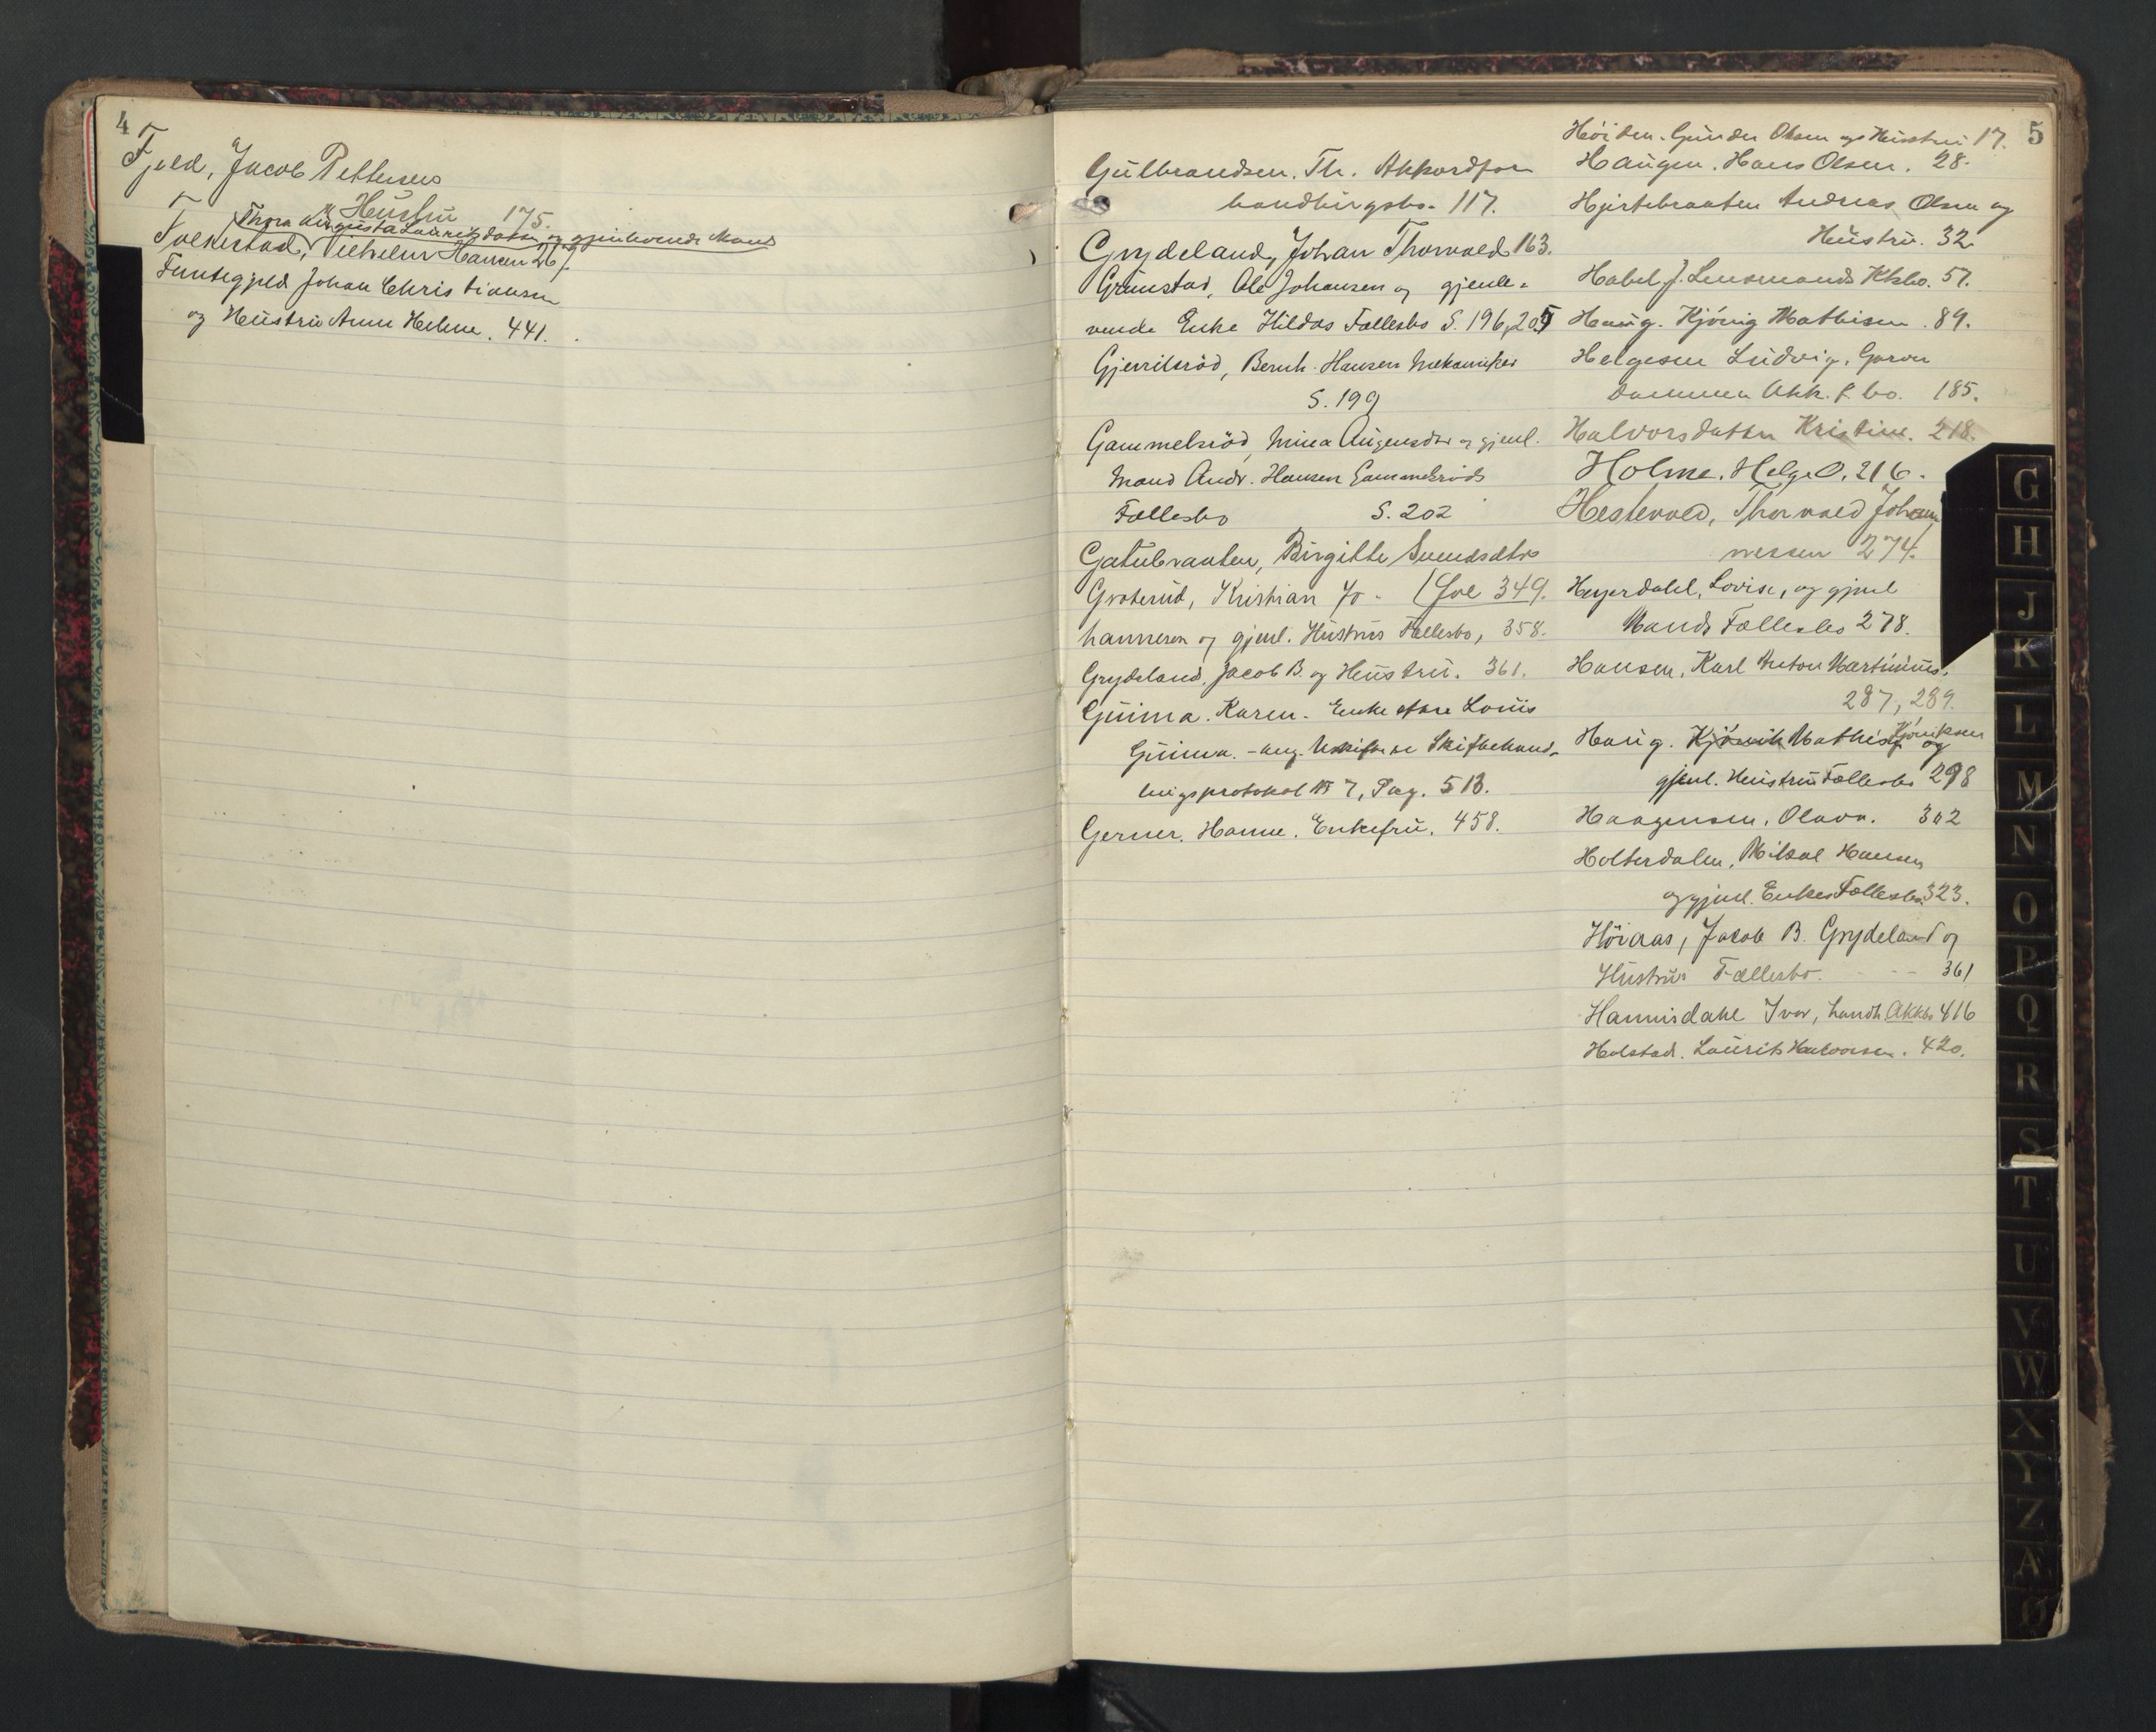 4
Fjeld, Jacob Pettersens
& Hustru 175.
Thora Augusta Lauritzdatter og gjenlevende Mand
Folkestad, Vilhelm Hansen 267.
Funtegjeld Johan Christiansen
og Hustru Anne Helene. 441.
5
Gulbrandsen. Th. Akkordfor
handlingsbo. 117.
Grydeland, Johan Thorvald 163.
Grimstad, Ole Johansen og gjenle-
vende Enke Hildas Fællesbo S. 196, 205
Gjerrilsröd, Bernh. Hansen Mekaniker
S. 199
Gammelsröd, Mina Augensdtr og gjenl.
Mand Andr. Hansen Gammelsröds
Fællesbo S. 202
Gatubraaten, Birgitte Svendsdtr
Groterud, Kristian Jo- (Fol 349.
hannesen og gjenl. Hustrus Fællesbo, 358.
Grydeland, Jacob B. og Hustru. 361.
Guima. Karen. Enke efter Louis
Guima. - ang. Uskifte se Skiftebehand-
lingsprotokol № 7, Pag. 513.
Gerner. Hanne. Enkefru. 458.
Höiden. Gunder Olsen og Hustru 17.
Haugen. Hans Olsen. 28.
Hjertebraaten Andreas Olsen og
Hustru. 32.
Habel J. Lensmands Kksbo. 57.
Haug. Kjönig Mathisen. 89.
Helgesen Ludvig, Garver
Dammen Akk. f. bo. 185.
Halvorsdatter Kristine. 218.
Holme. Helge O. 216.
Hestevold, Thorvald Johan
nessen 274.
Heyerdahl, Lovise, og gjenl
Mands Fællesbo 278.
Hansen, Karl Anton Martinius.
287, 289.
Haug. Kjönik Mathias Kjöniksen og
gjenl. Hustrus Fællesbo 298
Haagensen, Olava. 302
Holterdalen, Mikal Hansen
og gjenl. Enkes Fællesbo. 323.
Höiaas, Jakob B. Grydeland og
Hustrus Fællesbo. - - - 361
Hannisdahl Ivar, handh. Akkbo 416
Holstad. Laurits Halvorsen. 420.
G
H
J
K
L
M
N
O
P
Q
R
S
T
U
V
W
X
Y
Z
Æ
Ø